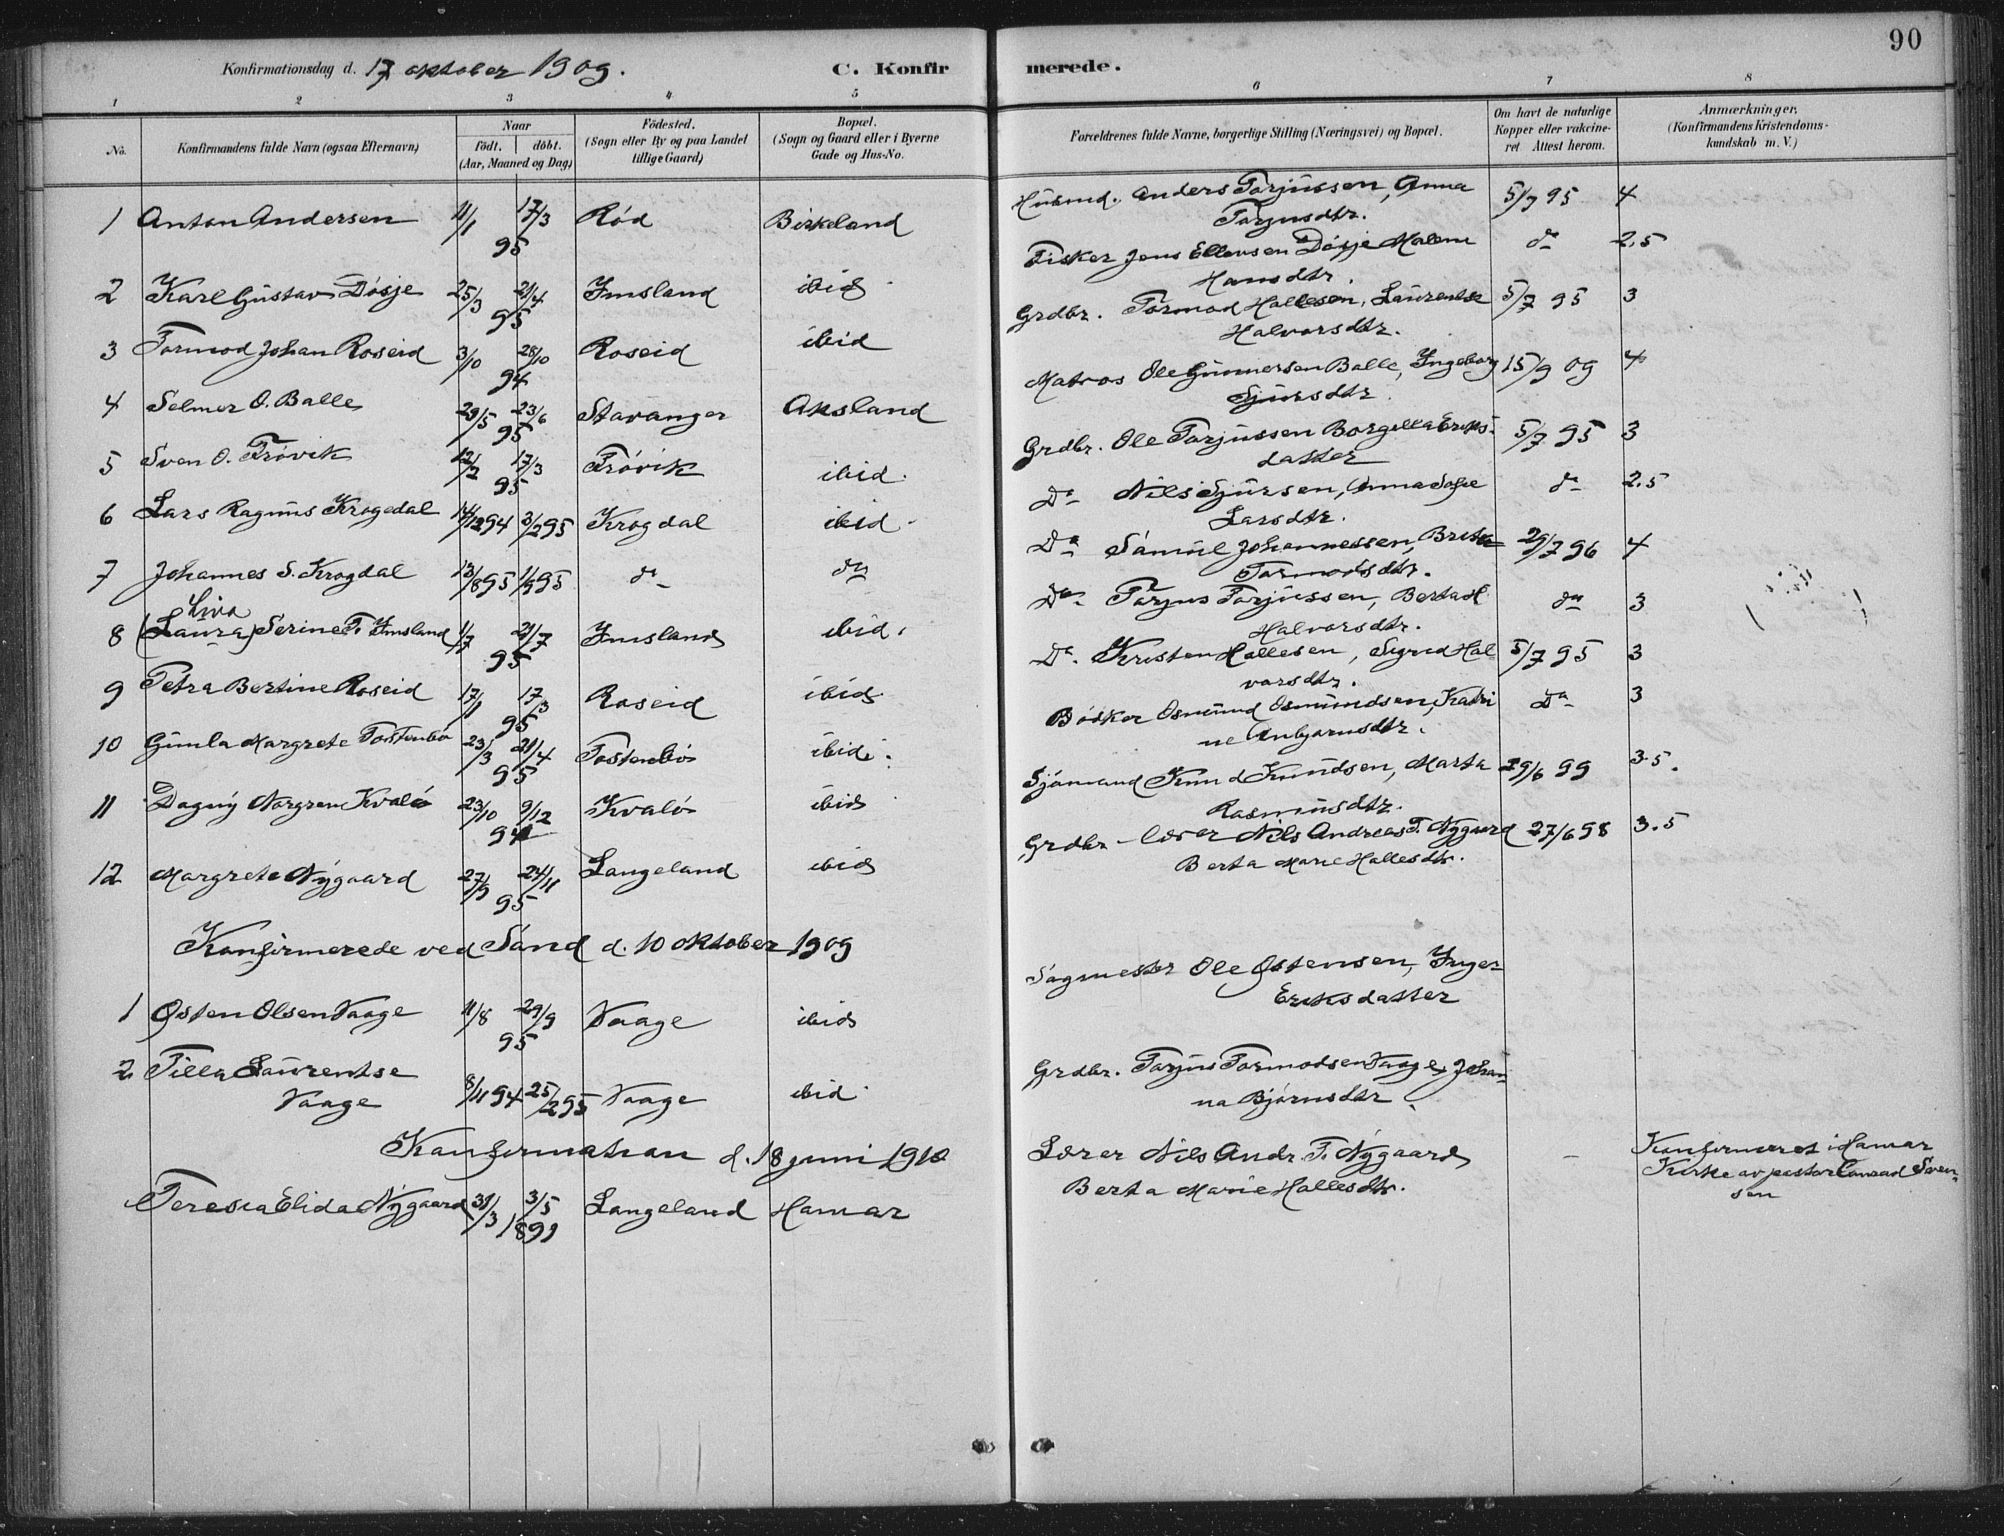 90
Konfirmationsdag d. 17 oktober 1909.
C. Konfirmerede.
1 2 3 4 5 6 7 8
No.
Konfirmandens fulde Navn (ogsaa Efternavn)
Naar
født. | døbt.
(Aar, Maaned og Dag)
Fødested.
(Sogn eller By og paa Landet
tillige Gaard)
Bopæl.
(Sogn og Gaard eller i Byerne
Gade og Hus-No.
Forældrenes fulde Navne, borgerlige Stilling (Næringsvei) og Bopæl.
Om havt de naturlige
Kopper eller vakcine-
ret Attest herom.
Anmærkninger.
(Konfirmandens Kristendoms-
kundskab m. V.)
1 Anton Andersen 11/1 17/3 95 Rød Birkeland Husmd. Anders Torjussen, Anna
Torjusdtr. 5/7 95 4
2 Karl Gustav Døsje 25/3 21/4 95 Imsland ibid Fisker Jens Ellevsen Døsje Malene
Hansdtr. do 2.5
3 Tormod Johan Roseid 3/10 28/10 94 Roseid ibid Grdbr. Tormod Hallesen, Laurentse
Halvorsdtr. 5/7 95 3
4 Selmer O. Balle 29/5 23/6 95 Stavanger Aksland Matros Ole Gunnersen Balle, Ingeborg
Sjursdtr. 15/9 09 4
5 Sven O. Frøvik 12/2 17/3 95 Frøvik ibid. Grdbr. Ole Torjussen Borgella Eriks-
datter 5/7 95 3
6 Lars Ragnus Krogedal 14/12 94 3/2 95 Krogdal ibid. Do Nils Sjursen, Anna Sofie
Larsdtr. do 2.5
7 Johannes S. Krogdal 13/8 95 1/9 95 do do Do Samuel Johannessen, Brita
Tormodsdtr. 29/7 96 4
Liva
8 (Laura) Serine T. Imsland 1/7 21/7 95 Imsland ibid. Do Torjus Torjussen, Berta H.
Halvorsdtr. do 3
9 Petra Bertine Roseid 17/1 17/3 95 Roseid ibid. Do. Kristen Hallesen, Sigrid Hal-
vorsdtr. 5/7 95 3
10 Gunla Margrete Tostenbø 23/3 21/4 95 Tostenbø ibid. Bøsker Osmund Osmundsen, Katri
ne Anbjørnsdtr. Do 3
11 Dagny Norgren Kvalø 23/10 9/12 94 Kvalø ibid Sjømand Knud Knudsen, Marta
Rasmusdtr. 29/6 99 3.5.
12 Margrete Nygaard 27/9 24/11 95 Langeland ibid Grdbr - lærer Nils Andreas T. Nygaard
Berta Marie Hallesdtr. 27/6 98 3.5
Konfirmerede ved Sand d. 10 oktober 1909
1 Østen Olsen Vaage 11/8 29/9 95 Vaage ibid Sagmester Ole Østensen, Inger
Eriksdatter
2 Tilla Laurentse
Vaage 8/11 94 25/2 95 Vaage ibid Grdbr. Torjus Tormodsen Vaage, Johan-
na Bjørnsdtr.
Konfirmation d. 18 juni 1918
Teresia Elida Nygaard 31/3 3/5 1899 Langeland Hamar Lærer Nils Andr. T. Nygaard
Berta Marie Hallesdtr. -
Konfirmeret i Hamar
Kirke av pastor Conrad Sven-
sen